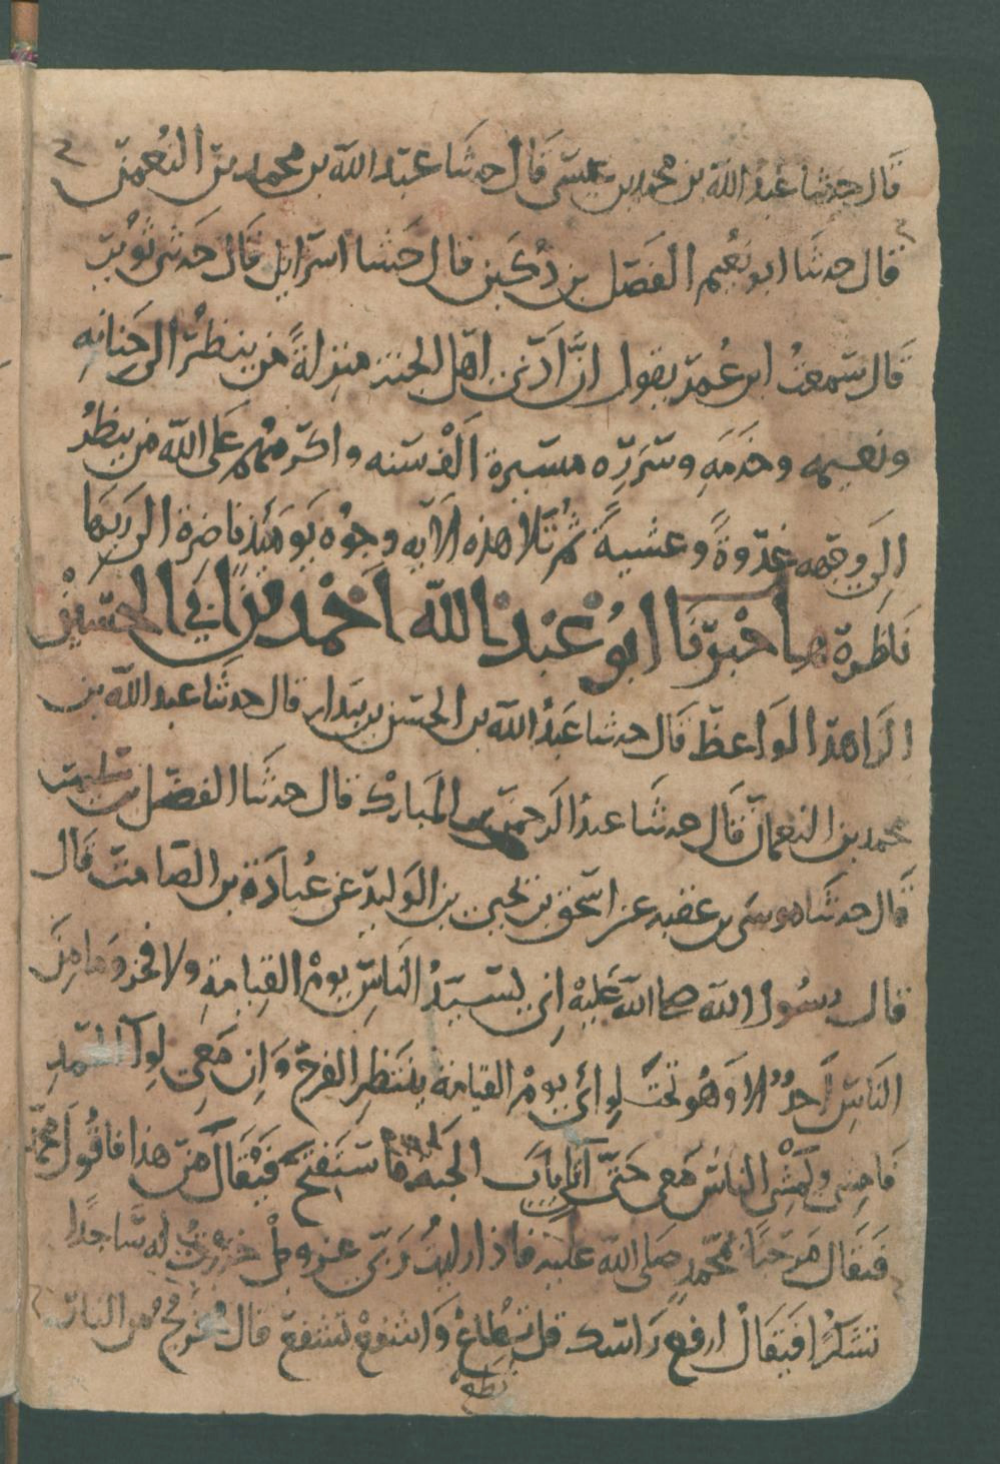 قال حدثنا عبد الله بن محمد بن عيسى قال حدثنا عبد الله بن محمد بن النعمن
قال حدثنا ابو نعيم الفضل بن دكين قال حدثنا اسرايل قال حدثني ثوير
قال سمعت ابن عمر يقول ان ادنى اهل الجنة منزلة من ينظر الى جنانه
ونعيمه وخدمه وسرره مسيرة الف سنه واكرمهم على الله من ينظر
الى وجهه غدوة وعشية ثم تلا هذه الايه وجوه يومئذ ناضرة الى ربها
ناظرة اخبرنا ابو عبد الله احمد بن ابي الحسين
الزاهد الواعظ قال حدثنا عبد الله بن الحسن بن بندار قال حدثنا عبد الله بن
محمد بن النعمان قال حدثنا عبد الرحمن بن المبارك قال حدثنا الفضل بن سليمن
قال حدثنا موسى بن عقبه عن اسحق بن يحيى بن الوليد عن عبادة بن الصامت قال
قال رسول الله صلى الله عليه اني لسيد الناس يوم القيامة ولا فخر وما من
الناس احد الا وهو تحت لوائي يوم القيامة ينتظر الفرج وان معي لوآ الحمد
فامشي ويمشي الناس معي حتى آتي باب الجنة فاستفتح فيقال من هذا فاقول محمد
فيقال مرحبا بمحمد صلى الله عليه فاذا رايت ربي عز وجل خررت له ساجدا
شكرا فيقال ارفع راسك قل تطاع واشفع تشفع قال فيخرج من النار